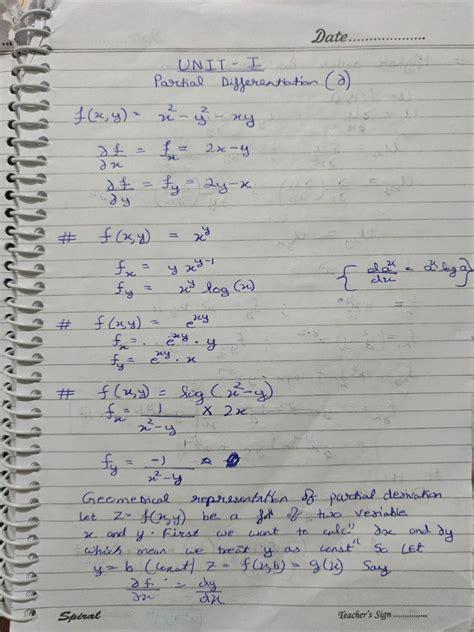 Date...................
UNIT - I
Partial Differentiation (∂)
f(x,y) = x² - y² - xy
∂f/∂x = fx = 2x-y
∂f/∂y = fy = 2y-x
# f(x,y) = x^y
fx = y x^(y-1)
fy = x^y log(x) { da^x/dx = a^x log a }
# f(x,y) = e^xy
fx = e^xy . y
fy = e^xy . x
# f(x,y) = log(x²-y)
fx = 1/(x²-y) × 2x
fy = -1/(x²-y)
Geometrical representation of partial derivation
Let Z = f(x,y) be a fn of two variable
x and y. First we want to calcn ∂x and ∂y
which mean we treat y as constn So Let
y = b (const) z = f(x,b) = g(x) Say
∂f/∂x = dy/dx
Spiral
Teacher's Sign ...............